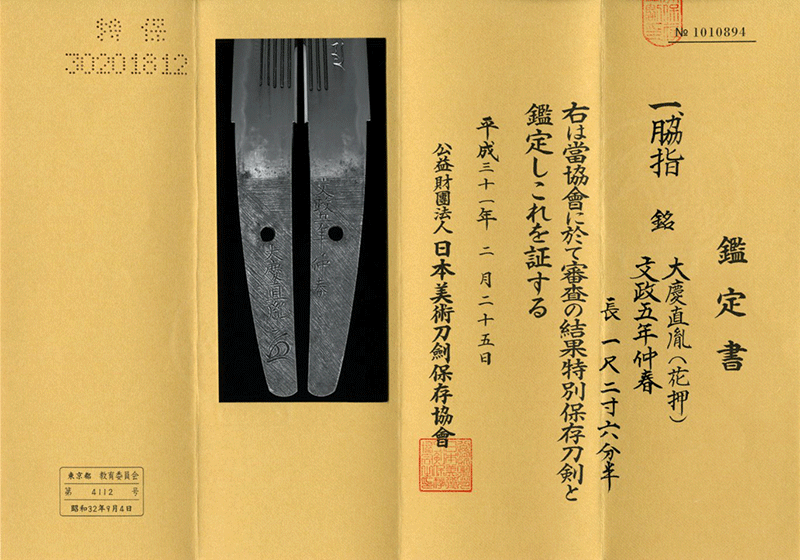 № 1010894
鑑定書
一、脇指 銘 大慶直胤(花押)
文政五年仲春
長 一尺二寸六分半
右は當協會に於て審査の結果特別保存刀剣と
鑑定しこれを証する
平成三十一年 二月二十五日
公益財團法人 日本美術刀劍保存協會
文政五年仲春
大慶直胤
特保
30201812
東京都 教育委員会
第 4112 号
昭和32年9月4日